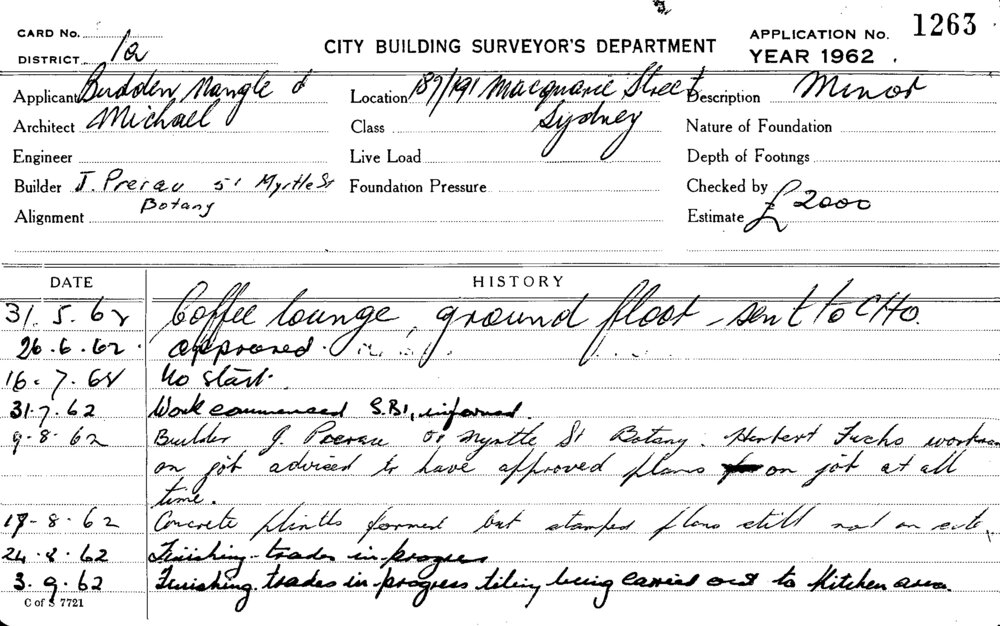 CARD No.
DISTRICT 1a
CITY BUILDING SURVEYOR'S DEPARTMENT
APPLICATION No. 1263
YEAR 1962
Applicant Budden Nangle &
Location 187/191 Macquarie Street
Description Minor
Architect Michael
Class Sydney
Nature of Foundation
Engineer
Live Load
Depth of Footings
Builder J. Prerau 51 Myrtle St
Foundation Pressure
Checked by
Botany
Alignment
Estimate £2000
DATE HISTORY
31.5.62 Coffee lounge, ground floor - sent to CHO.
26.6.62. approved.
16.7.62 No start.
31.7.62 Work commenced S.BI, informed.
9-8-62 Builder J. Prerau Myrtle St Botany. Herbert Fuchs workman
on job advised to have approved plans on job at all
time.
17-8-62 Concrete plinths formed but stamped plans still not on site.
24-8-62 Finishing trades in progress
3.9.62 Finishing trades in progress tiling being carried out to Kitchen area.
C of S 7721